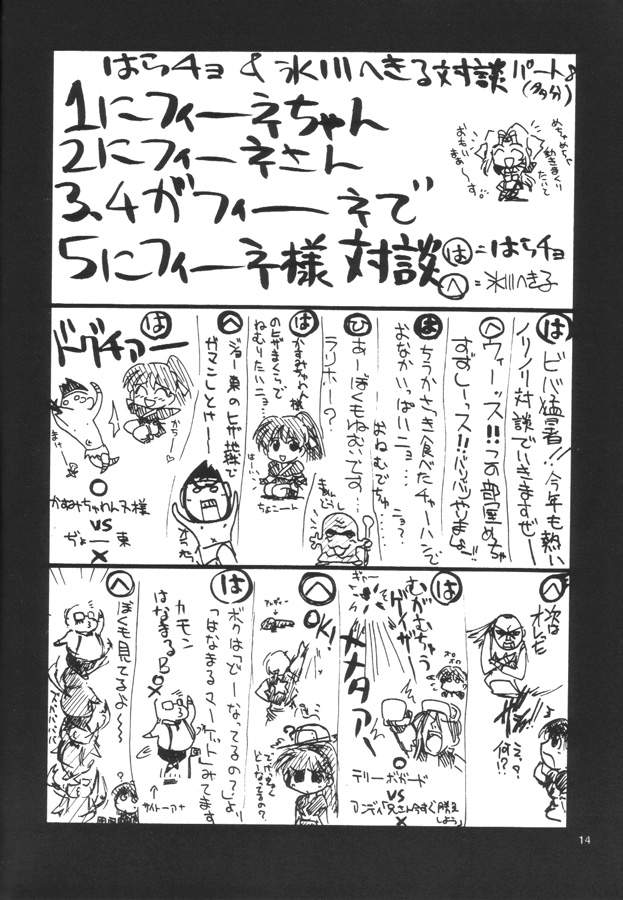 はらチョ & 氷川へきる対談パート8
(多分)
1にフィーネちゃん
2にフィーネさん
3、4がフィーネで
5にフィーネ様対談
めちゃめちゃ
動きまくり
たいて
おもい
まぁ〜す。
は=はらチョ
へ=氷川へき子
は ビバ猛暑!!今年も熱い
ノリノリ対談でいきますぜー
へ ウィーッス!!この部屋めっちゃ
すずしーッス!!バリバリやりまひょ!!
は ちうかさっき食べたチャーハンで
おなかいっぱいニョ…
…おねむでちゅ…ニョ?
ひ あーぼくもねむいです…
ラリホー?
は かすみちゃん様
のヒザまくらで
ねむりたいニョ…
はーい
ちょこーん
へ ジョー東のヒザ地獄で
ガマンしとけー
は ドグチアー
かち♡
まけ
○
かすみちゃわん大様
vs
ぢょー東
×
へ 次は
オレだ
ザッ!!
えっ?
何!?
は むがむちゅう
ゲイザー
ギャー
メメタァー
ポポ
○
テリーボガード
vs
アンディ「兄さん今すぐ決着
しよう」
×
へ OK!
は ボクは「どーなってるの?」より
「はなまるマーケット」みてます
へ カモン
はなまるB
○
×
サイトーアナ
へ ぼくも見てるよ〜〜
14